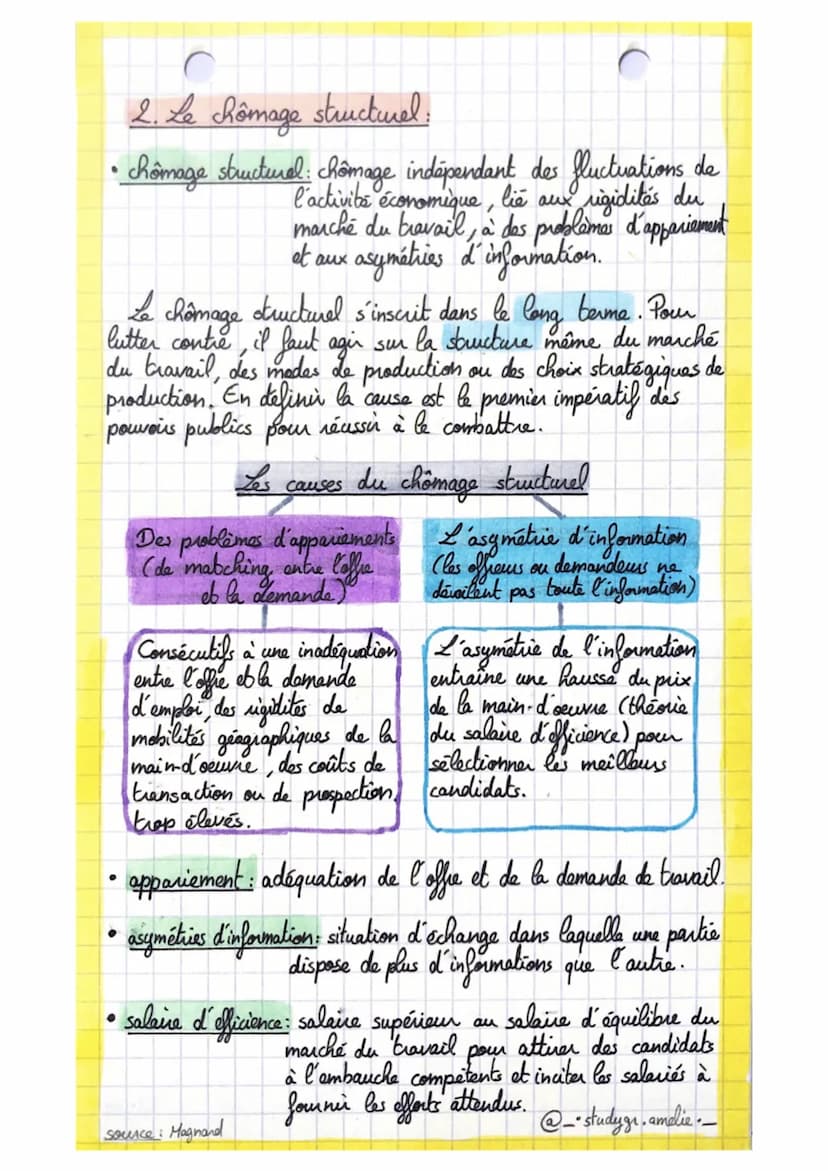 2. Le chômage structurel :
• chômage structurel : chômage indépendant des fluctuations de
l'activité économique, lié aux rigidités du
marché du travail, à des problèmes d'appariement
et aux asymétries d'information.
Le chômage structurel s'inscrit dans le long terme. Pour
lutter contre, il faut agir sur la structure même du marché
du travail, des modes de production ou des choix stratégiques de
production. En définir la cause est le premier impératif des
pouvoirs publics pour réussir à le combattre.
Les causes du chômage structurel
Des problèmes d'appariements
(de matching entre l'offre
et la demande)
L'asymétrie d'information
(les offreurs ou demandeurs ne
dévoilent pas toute l'information)
Consécutifs à une inadéquation
entre l'offre et la demande
d'emploi, des rigidités de
mobilités géographiques de la
main-d'oeuvre, des coûts de
transaction ou de prospection
trop élevés.
L'asymétrie de l'information
entraîne une hausse du prix
de la main-d'oeuvre (théorie
du salaire d'efficience) pour
sélectionner les meilleurs
candidats.
• appariement : adéquation de l'offre et de la demande de travail.
• asymétries d'information : situation d'échange dans laquelle une partie
dispose de plus d'informations que l'autre.
• salaire d'efficience : salaire supérieur au salaire d'équilibre du
marché du travail pour attirer des candidats
à l'embauche compétents et inciter les salariés à
fournir les efforts attendus.
source : Magnard
@_•studygr.amelie•_